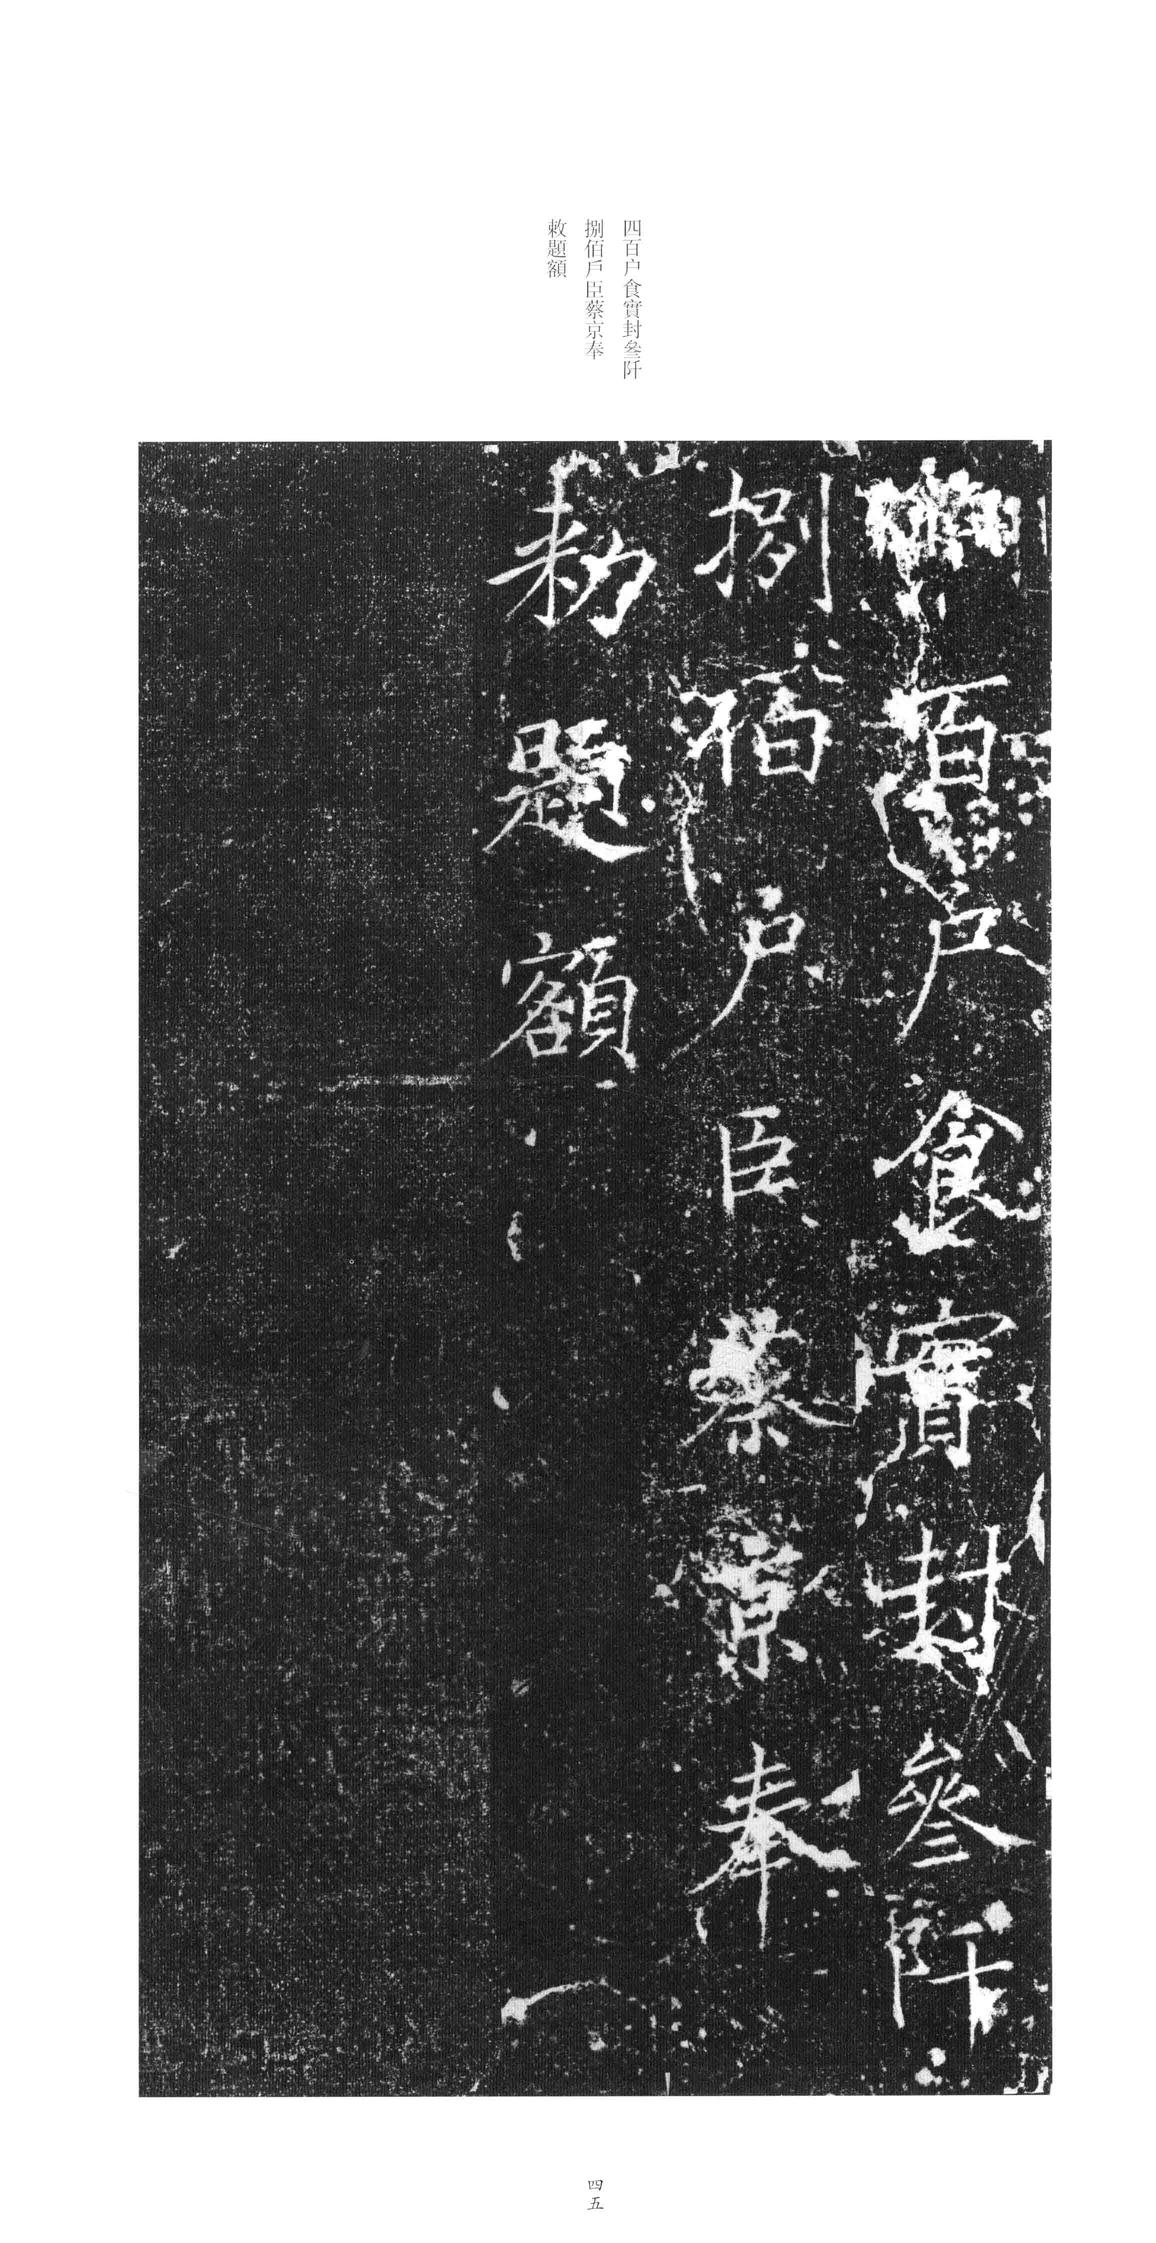 四百户食實封叄阡
捌佰戶臣蔡京奉
敕題額
百户食實封叄阡
捌佰戶臣蔡京奉
勑題額
四五